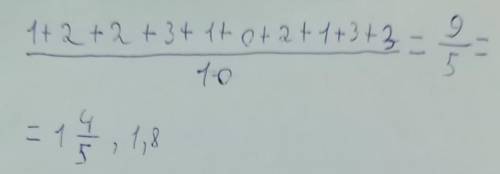 1+2+2+3+1+0+2+1+3+3 / 10 = 9/5 =
= 1 4/5 , 1,8